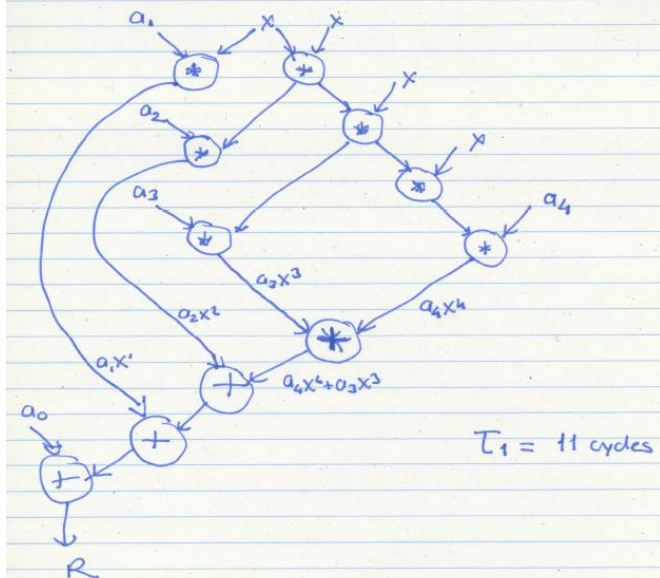 a₁ x x
* *
x
a₂ *
* x
*
a₃ a₄
* *
a₃x³
a₂x² a₄x⁴
*
+ a₄x⁴+a₃x³
a₁x¹
a₀ +
T₁ = 11 cycles
+
R